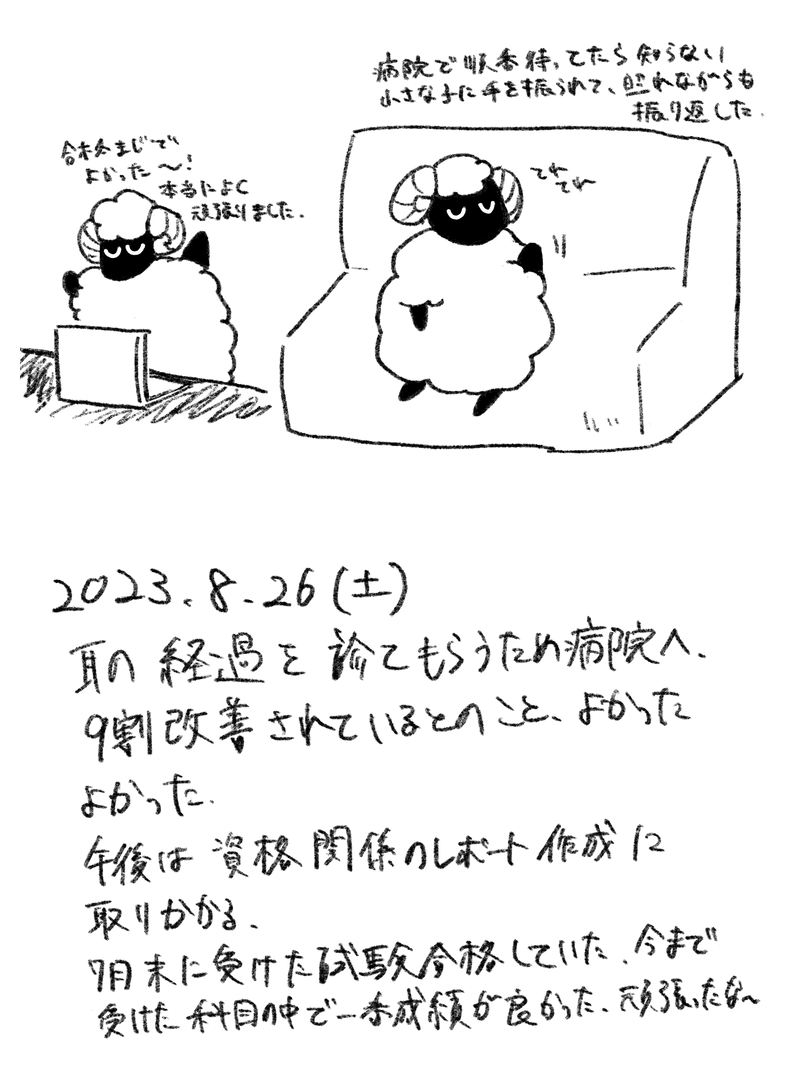 病院で順番待ってたら知らない
小さな子に手を振られて、照れながらも
振り返した.
合格まじで
よかった〜!
本当によく
頑張りました.
てれ
てれ
2023.8.26(土)
耳の経過を診てもらうため病院へ.
9割改善されているとのこと、よかった
よかった.
午後は資格関係のレポート作成に
取りかかる.
7月末に受けた試験合格していた.今まで
受けた科目の中で一番成績が良かった.頑張ったな〜